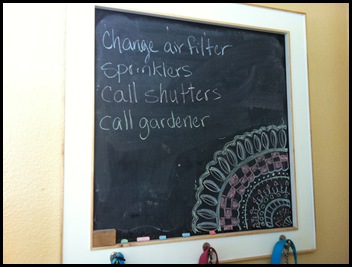 Change air filter
Sprinklers
Call shutters
Call gardener